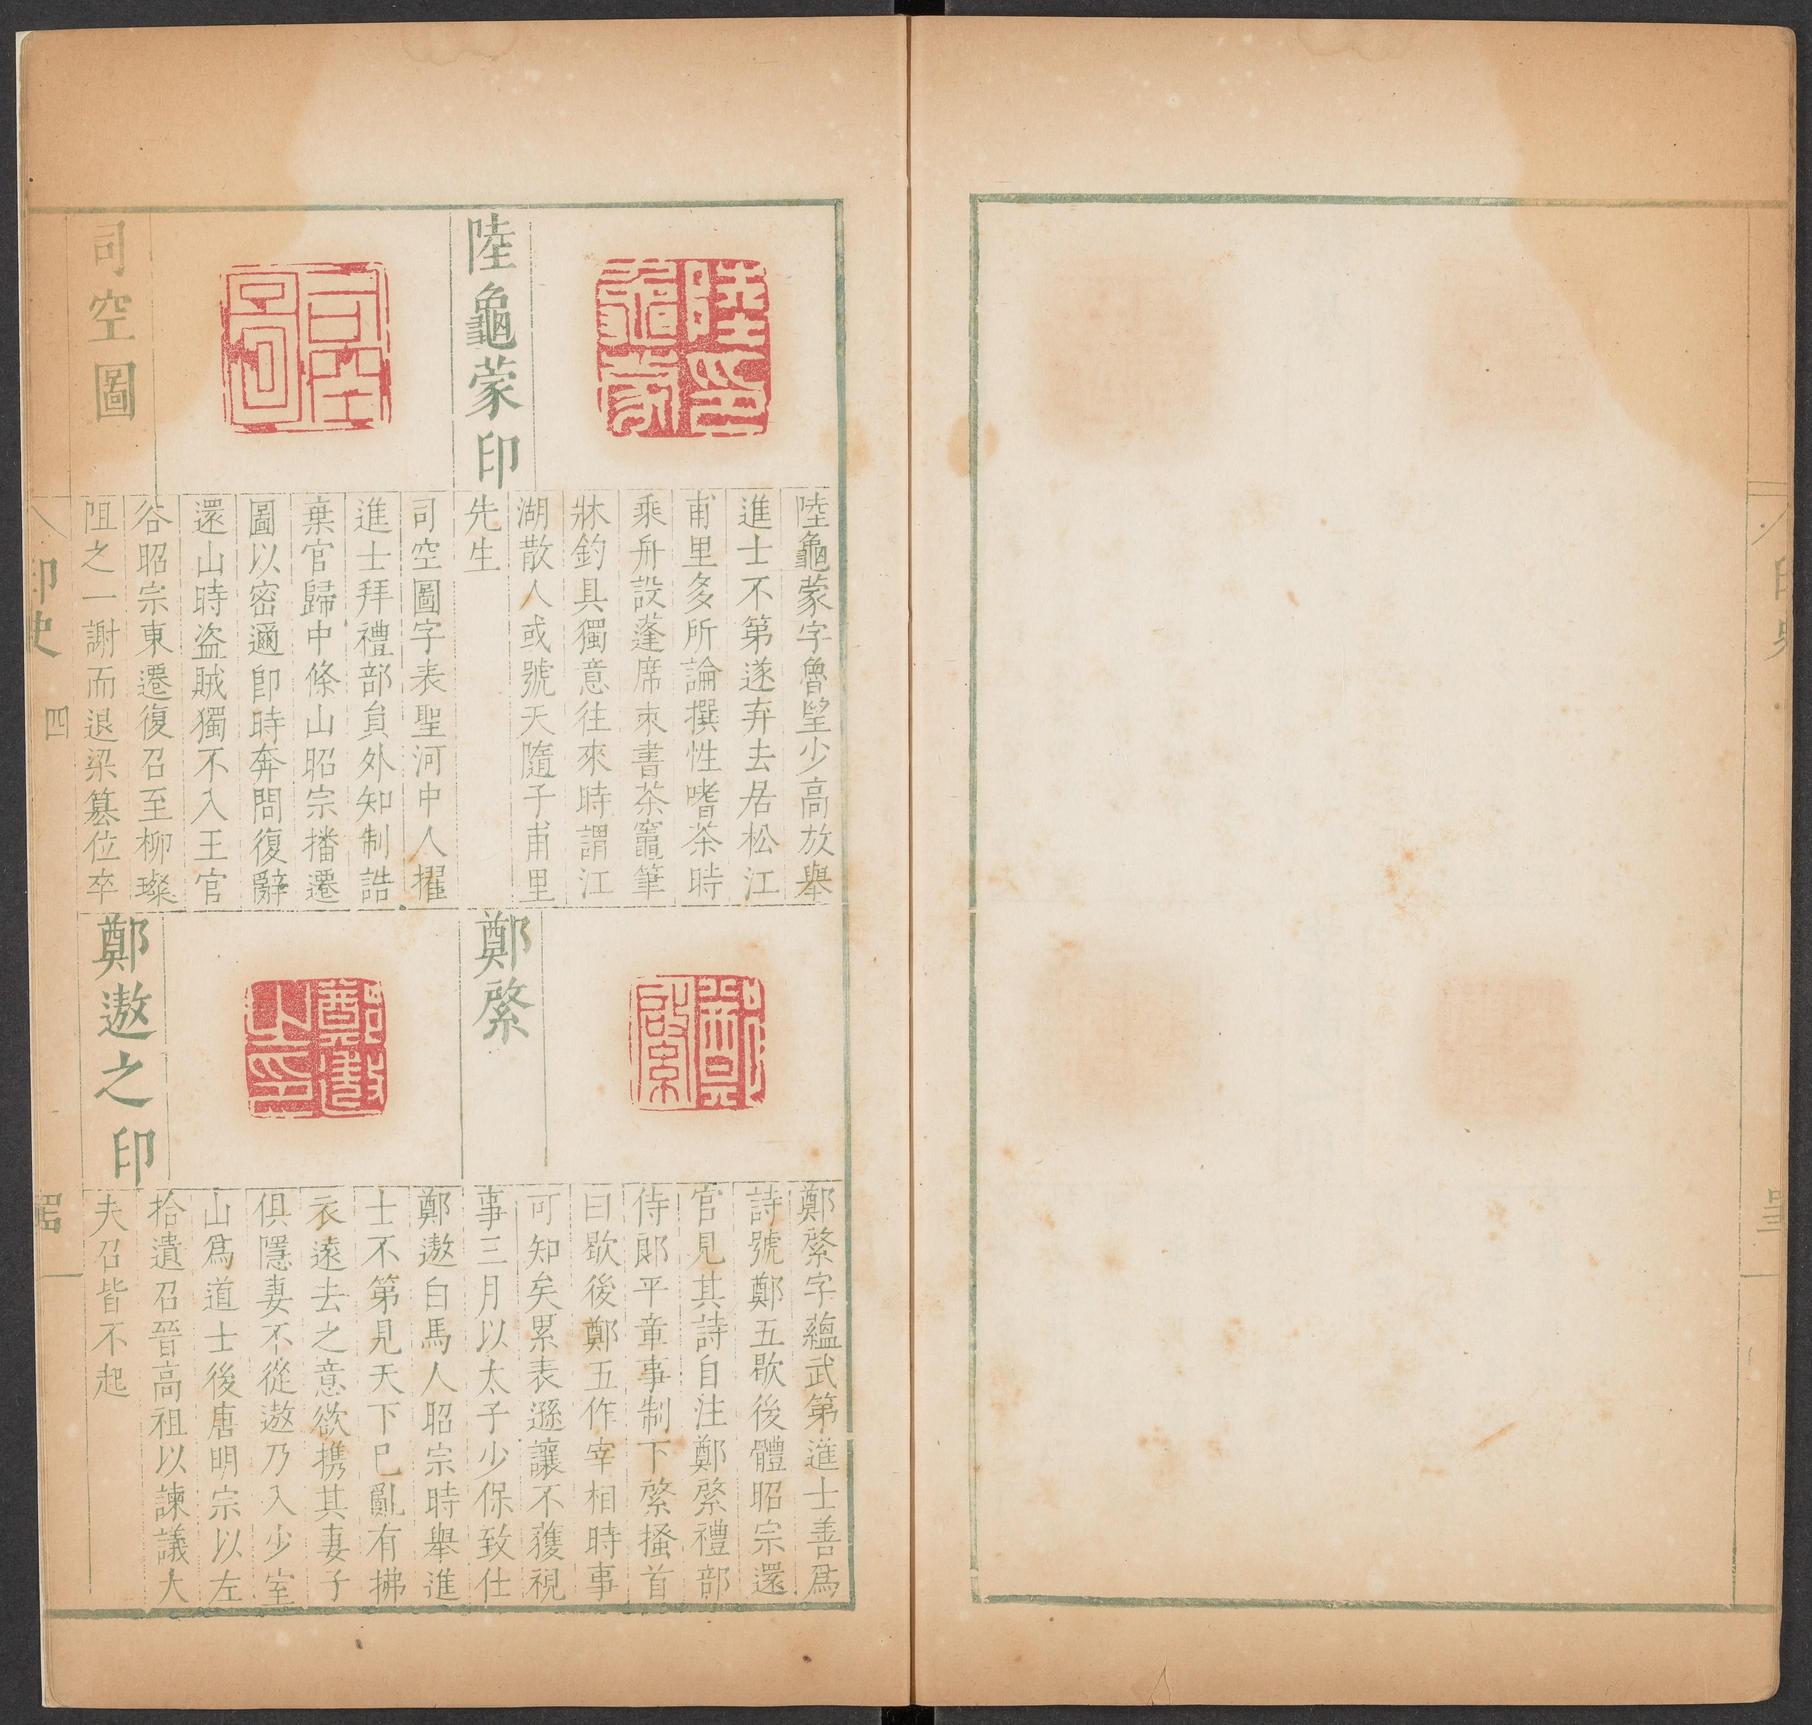 陸印龜蒙
陸龜蒙印
陸龜蒙字魯望少高放舉
進士不第遂弃去居松江
甫里多所論撰性嗜茶時
乘舟設蓬席朿書茶竈筆
牀釣具獨意往來時謂江
湖散人或號天隨子甫里
先生
司空圖
司空圖
司空圖字表聖河中人擢
進士拜禮部貟外知制誥
棄官歸中條山昭宗播遷
圖以密邇卽時奔問復辭
還山時盜賊獨不入王官
谷昭宗東遷復召至柳璨
阻之一謝而退梁簒位卒
鄭綮
鄭綮
鄭綮字蘊武第進士善爲
詩號鄭五歇後體昭宗還
官見其詩自注鄭綮禮部
侍郎平章事制下綮搔首
曰歇後鄭五作宰相時事
可知矣累表遜讓不獲視
事三月以太子少保致仕
鄭遨之印
鄭遨之印
鄭遨白馬人昭宗時舉進
士不第見天下巳亂有拂
衣遠去之意欲携其妻子
俱隱妻不從遨乃入少室
山爲道士後唐明宗以左
拾遺召晉高祖以諫議大
夫召皆不起
印史
四